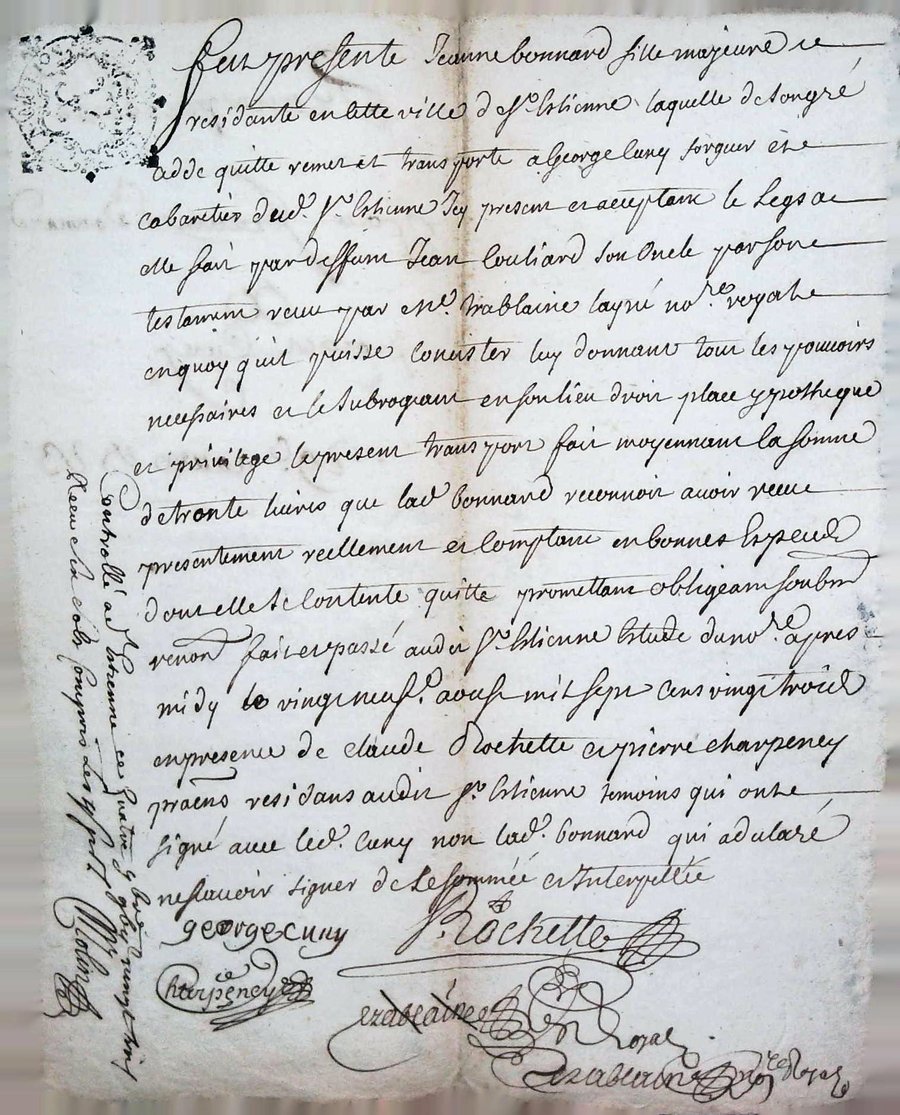 fut presente Jeanne bonnard fille majeure
residante en cette ville d St. Estienne laquelle de son gré
cedde quitte remet et transporte a George Cuny forgeur et
cabaretier dud. St. Estienne Icy present et acceptant le Legs a
elle fait par deffunt Jean Couliard son Oncle par son
testament receu par Me. trablaine layné nore. royal
en quoy qu'il puisse Concister luy donnant tout les pouvoirs
necessaires et le Subrogeant en son lieu droit place ypotheque
et privilege le present transport fait moyennant la somme
de trente livres que lad. bonnard reconnoit avoir receu
presentement reellement et Comptant en bonnes Especes
dont elle se Contente quitte promettant obligeant soubm
renon fait et passé audit St. Estienne Estude du nore. apres
midy le vingt neuf. aoust mil sept cens vingt trois
en presence de claude Rochette et pierre charpeney
residans audit St. Estienne temoins qui ont
signé avec led. Cuny non lad. bonnard qui a declaré
ne scavoir signer de Ce sommée et Interpellée
george cuny
Rochette
Charpeney
trablaine
Royal
trablaine nore Royal
Controllé a St Estienne ce quatre
Receu